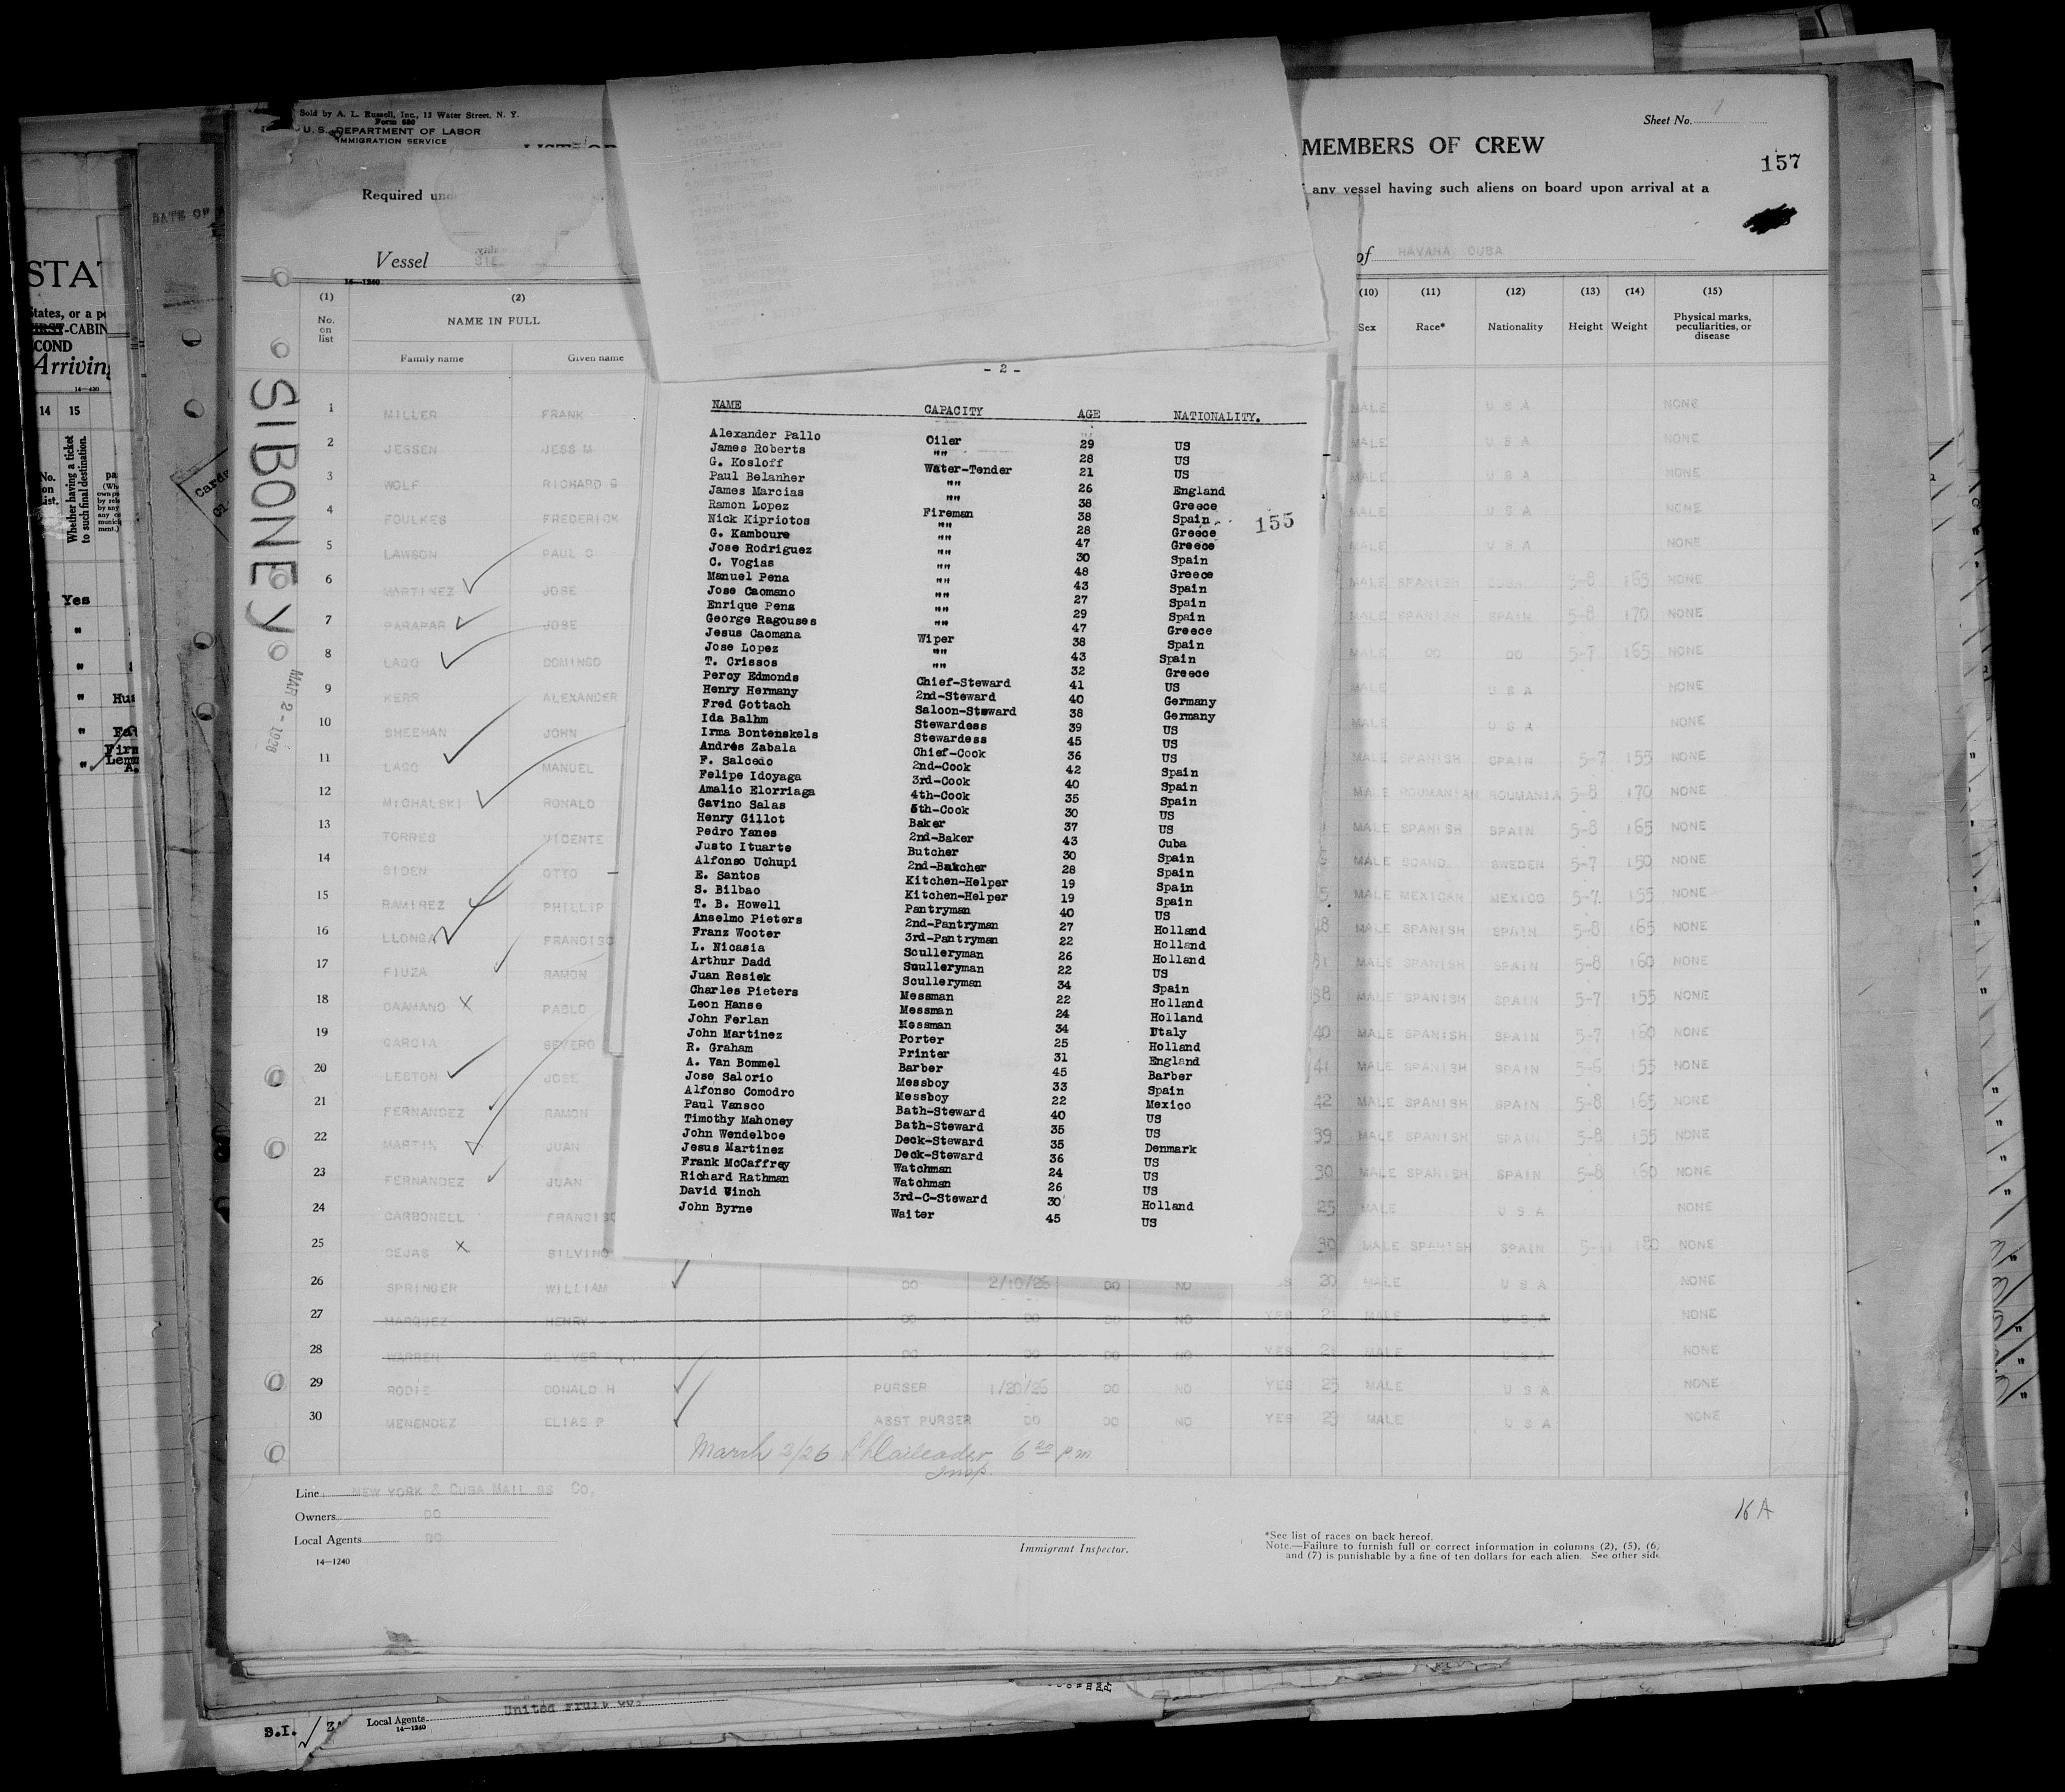 Sold by A. L. Russell, Inc., 13 Water Street, N. Y.
Form 680
U. S. DEPARTMENT OF LABOR
IMMIGRATION SERVICE
Sheet No. 1
MEMBERS OF CREW
157
Required und
any vessel having such aliens on board upon arrival at a
Vessel
of HAVANA CUBA
14—1240
(1) (2) (10) (11) (12) (13) (14) (15)
No. on list NAME IN FULL Sex Race* Nationality Height Weight Physical marks, peculiarities, or disease
Family name Given name
SIBONEY
MAR 2 - 1926
- 2 -
NAME CAPACITY AGE NATIONALITY.
Alexander Pallo Oiler 29 US
James Roberts "" 28 US
G. Kosloff Water-Tender 21 US
Paul Belanher "" 26 England
James Marcias "" 38 Greece
Ramon Lopez Fireman 38 Spain
155
Nick Kipriotos "" 28 Greece
G. Kamboure "" 47 Greece
Jose Rodriguez "" 30 Spain
C. Vogias "" 48 Greece
Manuel Pena "" 43 Spain
Jose Caomano "" 27 Spain
Enrique Pena "" 29 Spain
George Ragouses "" 47 Greece
Jesus Caomana Wiper 38 Spain
Jose Lopez "" 43 Spain
T. Crissos "" 32 Greece
Percy Edmonds Chief-Steward 41 US
Henry Hermany 2nd-Steward 40 Germany
Fred Gottach Saloon-Steward 38 Germany
Ida Balhm Stewardess 39 US
Irma Bontenskels Stewardess 45 US
Andrés Zabala Chief-Cook 36 US
F. Salcedo 2nd-Cook 42 Spain
Felipe Idoyaga 3rd-Cook 40 Spain
Amalio Elorriaga 4th-Cook 35 Spain
Gavino Salas 5th-Cook 30 US
Henry Gillot Baker 37 US
Pedro Yanes 2nd-Baker 43 Cuba
Justo Ituarte Butcher 30 Spain
Alfonso Uchupi 2nd-Butcher 28 Spain
E. Santos Kitchen-Helper 19 Spain
S. Bilbao Kitchen-Helper 19 Spain
T. B. Howell Pantryman 40 US
Anselmo Pieters 2nd-Pantryman 27 Holland
Franz Wooter 3rd-Pantryman 22 Holland
L. Nicasia Sculleryman 26 Holland
Arthur Dadd Sculleryman 22 US
Juan Resiek Sculleryman 34 Spain
Charles Pieters Messman 22 Holland
Leon Hanse Messman 24 Holland
John Ferlan Messman 34 Italy
John Martinez Porter 25 Holland
R. Graham Printer 31 England
A. Van Bommel Barber 45 Barber
Jose Salorio Messboy 33 Spain
Alfonso Comodro Messboy 22 Mexico
Paul Vansco Bath-Steward 40 US
Timothy Mahoney Bath-Steward 35 US
John Wendelboe Deck-Steward 35 Denmark
Jesus Martinez Deck-Steward 36 US
Frank McCaffrey Watchman 24 US
Richard Rathman Watchman 26 US
David Winch 3rd-C-Steward 30 Holland
John Byrne Waiter 45 US
1 MILLER FRANK MALE U S A NONE
2 JESSEN JESS M MALE U S A NONE
3 WOLF RICHARD G MALE U S A NONE
4 FOULKES FREDERICK MALE U S A NONE
5 LAWSON PAUL O MALE U S A NONE
6 MARTINEZ JOSE MALE SPANISH CUBA 5-8 165 NONE
7 PARAPAR JOSE MALE SPANISH SPAIN 5-8 170 NONE
8 LAGO DOMINGO MALE DO DO 5-7 165 NONE
9 KERR ALEXANDER MALE U S A NONE
10 SHEEHAN JOHN MALE U S A NONE
11 LAGO MANUEL MALE SPANISH SPAIN 5-7 155 NONE
12 MICHALSKI RONALD MALE ROUMANIAN ROUMANIA 5-8 170 NONE
13 TORRES VICENTE MALE SPANISH SPAIN 5-8 165 NONE
14 SIDEN OTTO MALE SCAND. SWEDEN 5-7 150 NONE
15 RAMIREZ PHILLIP MALE MEXICAN MEXICO 5-7 155 NONE
16 LLONGA FRANCISC MALE SPANISH SPAIN 5-8 165 NONE
17 FIUZA RAMON MALE SPANISH SPAIN 5-8 160 NONE
18 CAAMANO PABLO 38 MALE SPANISH SPAIN 5-7 155 NONE
19 GARCIA SEVERO 40 MALE SPANISH SPAIN 5-7 160 NONE
20 LESTON JOSE 41 MALE SPANISH SPAIN 5-6 155 NONE
21 FERNANDEZ RAMON 42 MALE SPANISH SPAIN 5-8 165 NONE
22 MARTIN JUAN 39 MALE SPANISH SPAIN 5-8 155 NONE
23 FERNANDEZ JUAN 30 MALE SPANISH SPAIN 5-8 60 NONE
24 CARBONELL FRANCISC 25 MALE U S A NONE
25 CEJAS SILVINO 30 MALE SPANISH SPAIN 180 NONE
26 SPRINGER WILLIAM DO 2/10/26 DO NO 20 MALE U S A NONE
27 MARQUEZ HENRY DO DO DO NO YES 21 MALE U S A NONE
28 WARREN OLIVER DO DO DO NO YES 21 MALE U S A NONE
29 RODIE DONALD H PURSER 1/20/26 DO NO YES 25 MALE U S A NONE
30 MENENDEZ ELIAS P ASST PURSER DO DO NO YES 29 MALE U S A NONE
March 2/26 6 20 p.m
Insp.
Line NEW YORK & CUBA MAIL SS Co.
Owners DO
Local Agents DO
14—1240
Immigrant Inspector.
*See list of races on back hereof.
Note.—Failure to furnish full or correct information in columns (2), (5), (6)
and (7) is punishable by a fine of ten dollars for each alien. See other side
KA
STAT
States, or a po
FIRST-CABIN
COND
Arriving
14—430
14 15
No. on list.
Whether having a ticket to such final destination.
Yes
DATE OF
Cards
B.I.
Local Agents United Fruit
14—1240